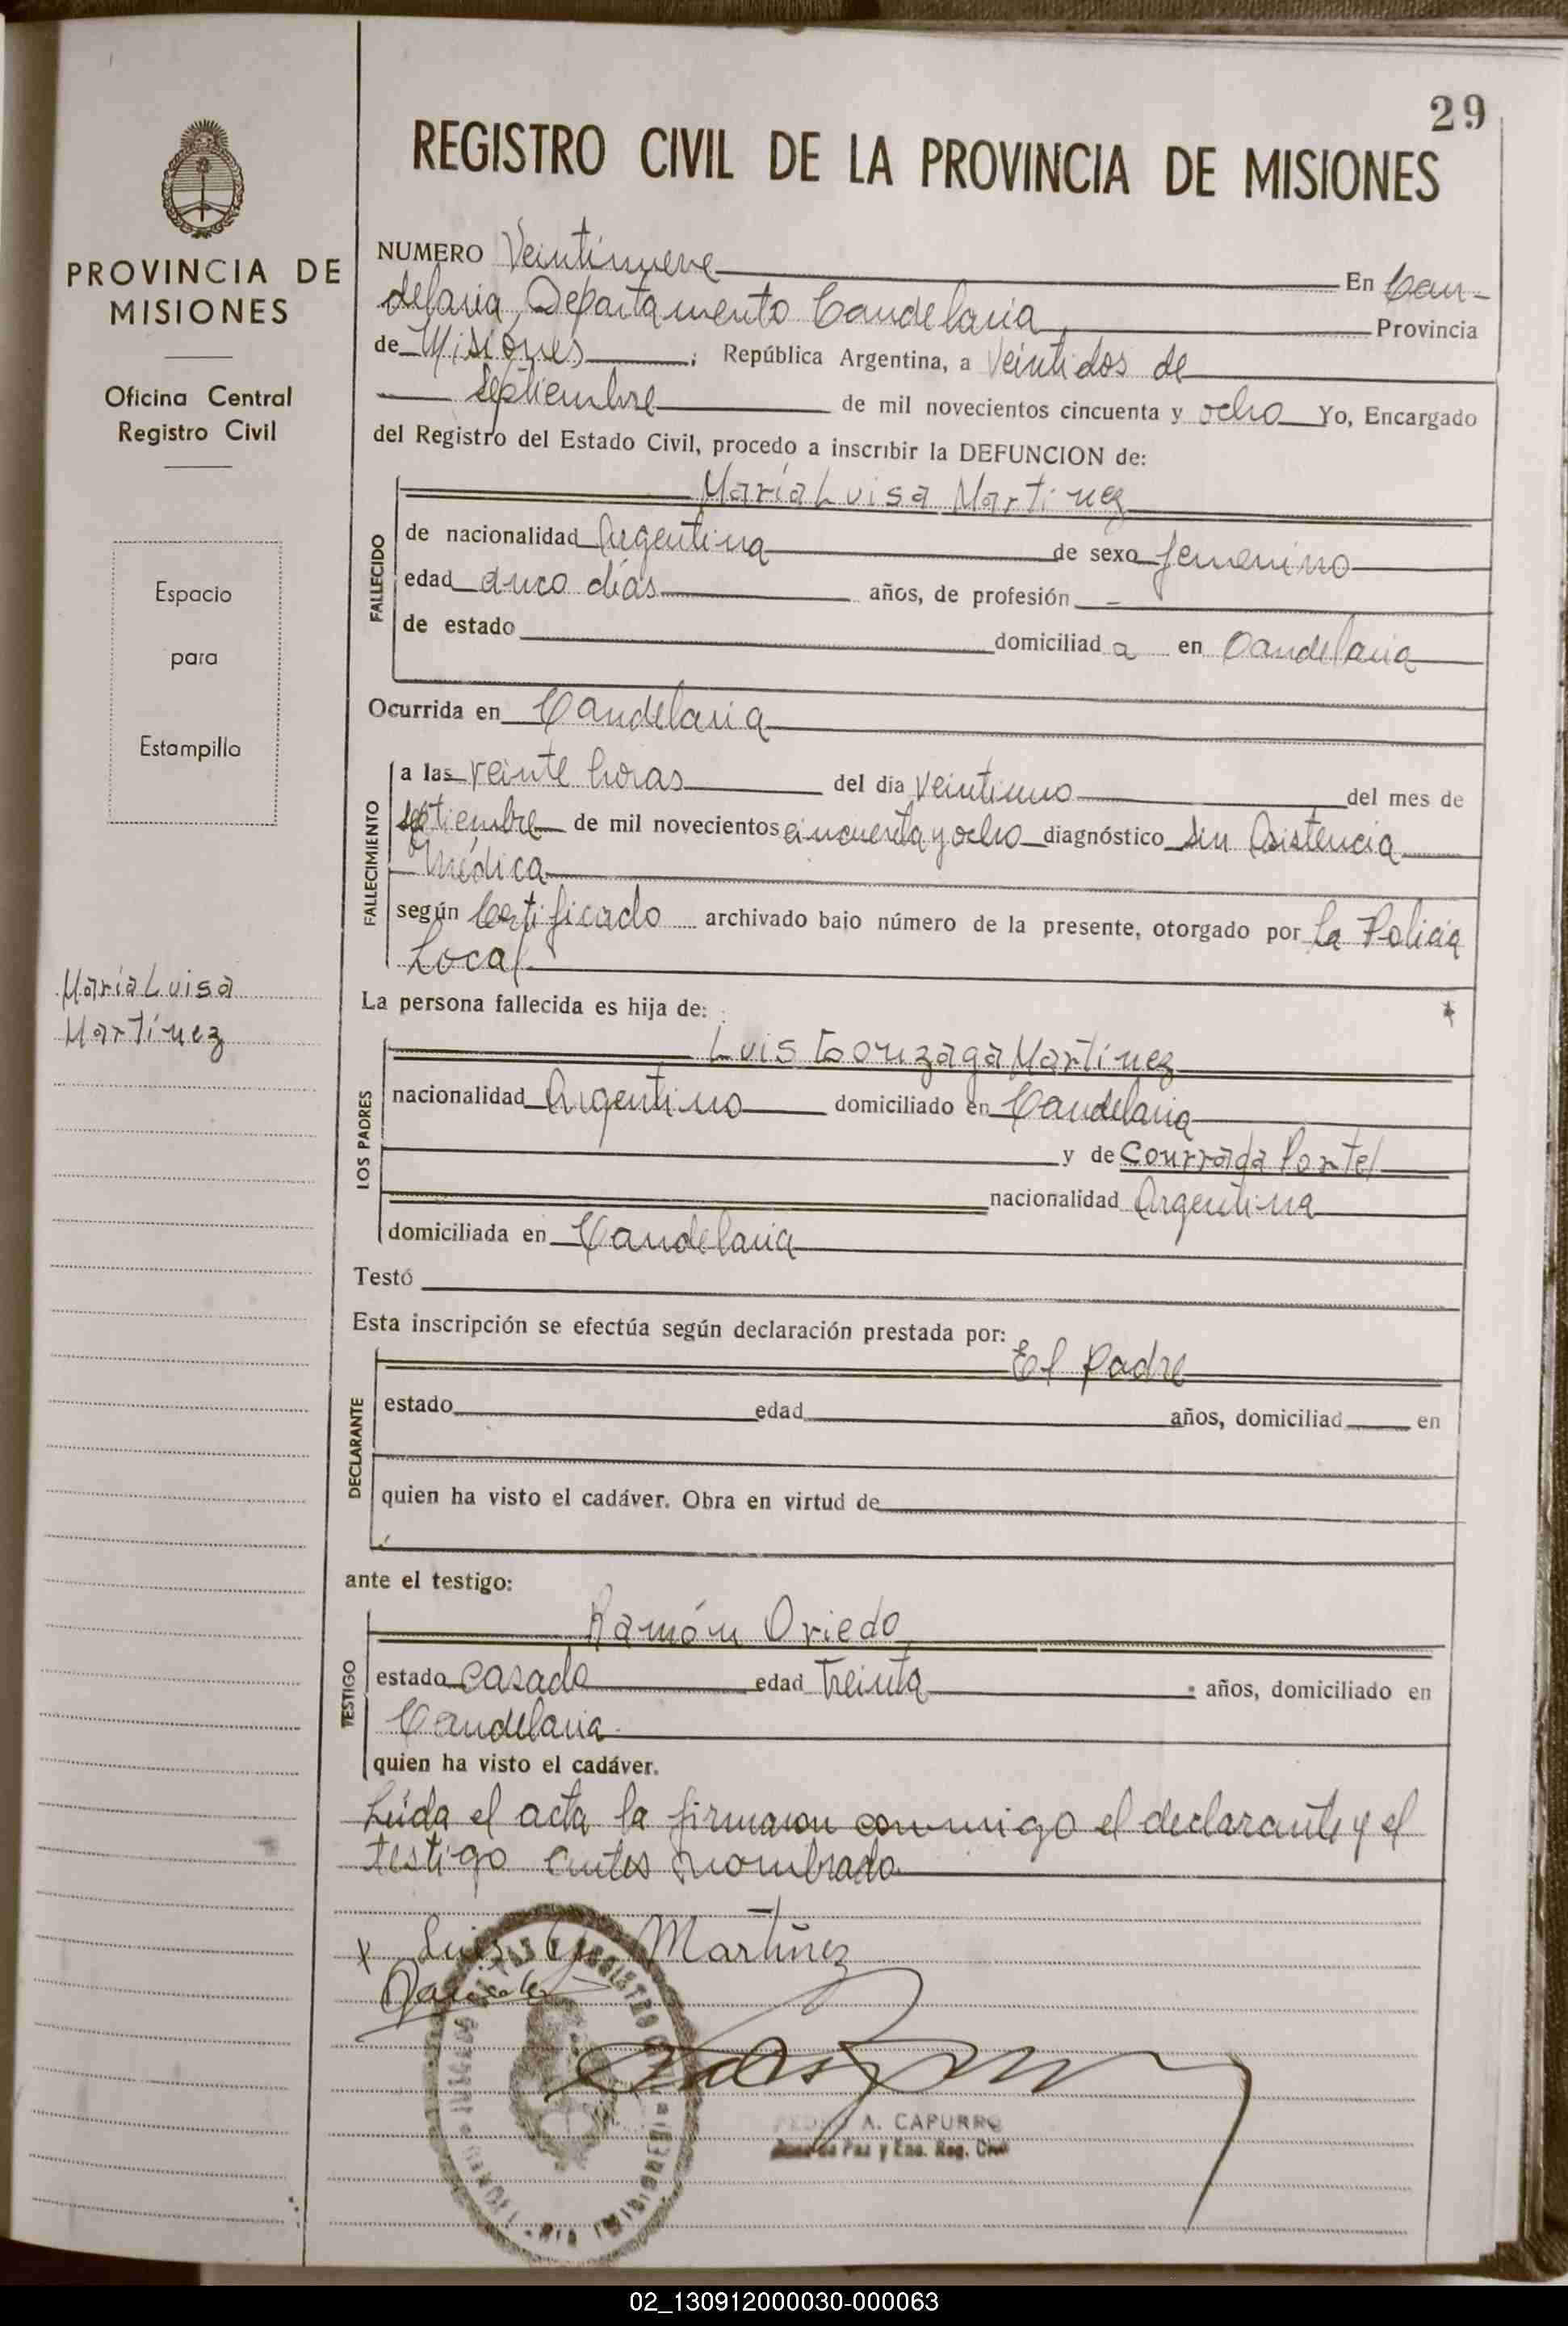 29
REGISTRO CIVIL DE LA PROVINCIA DE MISIONES
PROVINCIA DE
MISIONES
Oficina Central
Registro Civil
Espacio
para
Estampilla
María Luisa
Martínez
NUMERO Veintinueve En Can-
delaria, Departamento Candelaria, Provincia
de Misiones; República Argentina, a Veintidos de
septiembre de mil novecientos cincuenta y ocho Yo, Encargado
del Registro del Estado Civil, procedo a inscribir la DEFUNCION de:
FALLECIDO
María Luisa Martinez
de nacionalidad Argentina de sexo femenino
edad cinco días años, de profesión -
de estado domiciliad a en Candelaria
Ocurrida en Candelaria
FALLECIMIENTO
a las veinte horas del dia veintiuno del mes de
septiembre de mil novecientos cincuenta y ocho diagnóstico sin Asistencia
Médica
según Certificado archivado bajo número de la presente, otorgado por La Policía
Local.
La persona fallecida es hija de:
LOS PADRES
Luis Gonzaga Martínez
nacionalidad Argentino domiciliado en Candelaria
y de Conrrada Portel
nacionalidad Argentina
domiciliada en Candelaria
Testó
Esta inscripción se efectúa según declaración prestada por:
DECLARANTE
El padre
estado edad años, domiciliad en
quien ha visto el cadáver. Obra en virtud de
ante el testigo:
TESTIGO
Ramón Oviedo
estado casado edad treinta años, domiciliado en
Candelaria.
quien ha visto el cadáver.
Leída el acta la firmaron conmigo el declarante y el
testigo antes nombrado
x Luis Martínez
A. CAPURRO
Juez de Paz y Enc. Reg. Civil
02_130912000030-000063